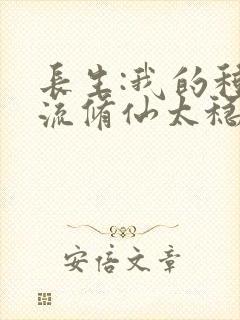 長生:我的種
流脩仙太穩
安倍文章